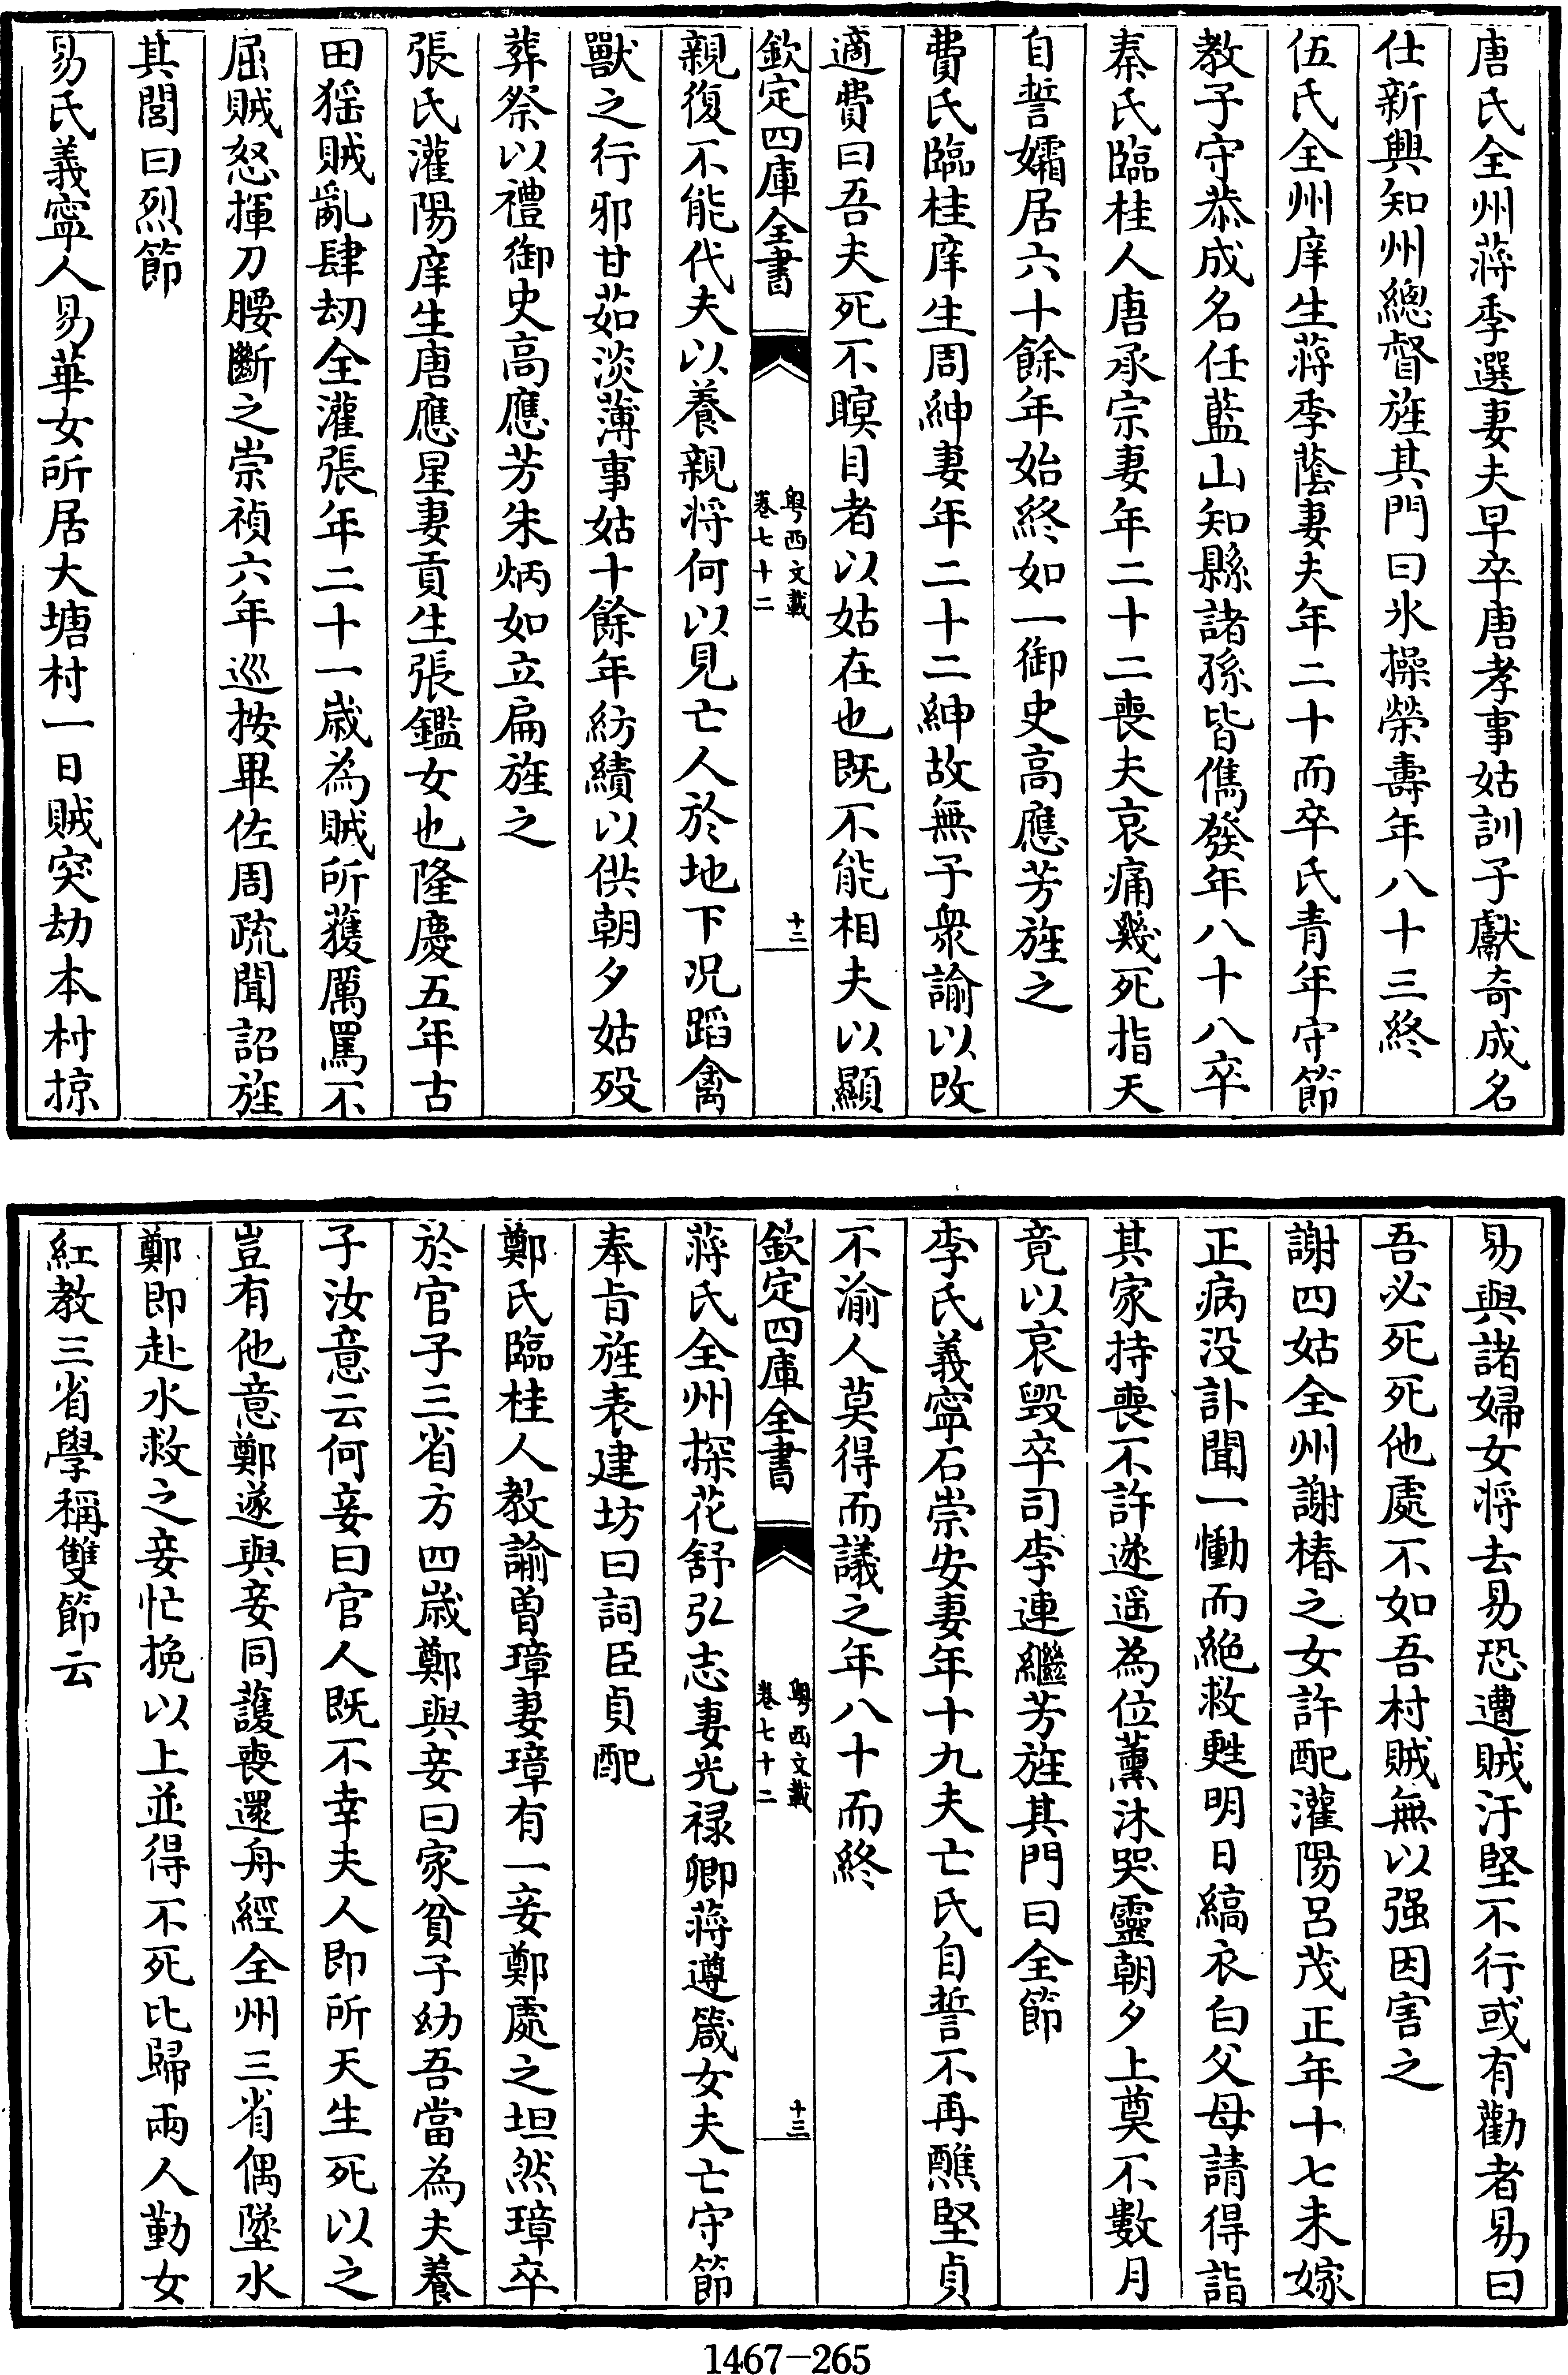 唐氏全州蔣季選妻夫早卒唐孝事姑訓子獻奇成名
仕新興知州總督旌其門曰氷操榮壽年八十三終
伍氏全州庠生蔣季蔭妻夫年二十而卒氏青年守節
教子守恭成名任藍山知縣諸孫皆儁發年八十八卒
秦氏臨桂人唐承宗妻年二十二喪夫哀痛幾死指天
自誓孀居六十餘年始終如一御史高應芳旌之
費氏臨桂庠生周紳妻年二十二紳故無子衆諭以改
適費曰吾夫死不瞑目者以姑在也既不能相夫以顯
欽定四庫全書
粤西文載
卷七十二
十二
親復不能代夫以養親将何以見亡人於地下况蹈禽
獸之行邪甘茹淡薄事姑十餘年紡績以供朝夕姑殁
葬祭以禮御史高應芳朱炳如立扁旌之
張氏灌陽庠生唐應星妻貢生張鑑女也隆慶五年古
田猺賊亂肆刼全灌張年二十一歲為賊所獲厲罵不
屈賊怒揮刀腰斷之崇禎六年巡按畢佐周疏聞詔旌
其閭曰烈節
易氏義寧人易華女所居大塘村一日賊突劫本村掠
易與諸婦女将去易恐遭賊汙堅不行或有勸者易曰
吾必死死他處不如吾村賊無以强因害之
謝四姑全州謝椿之女許配灌陽呂茂正年十七未嫁
正病没訃聞一慟而絶救甦明日縞衣白父母請得詣
其家持喪不許遂遥為位薰沐哭靈朝夕上奠不數月
竟以哀毁卒司李連繼芳旌其門曰全節
李氏義寧石崇安妻年十九夫亡氏自誓不再醮堅貞
不渝人莫得而議之年八十而終
欽定四庫全書
粤西文載
卷七十二
十三
蔣氏全州探花舒弘志妻光禄卿蔣遵箴女夫亡守節
奉旨旌表建坊曰詞臣貞配
鄭氏臨桂人教諭曾璋妻璋有一妾鄭處之坦然璋卒
於官子三省方四歲鄭與妾曰家貧子幼吾當為夫養
子汝意云何妾曰官人既不幸夫人即所天生死以之
豈有他意鄭遂與妾同護喪還舟經全州三省偶墜水
鄭即赴水救之妾忙挽以上並得不死比歸兩人勤女
紅教三省學稱雙節云
1467-265